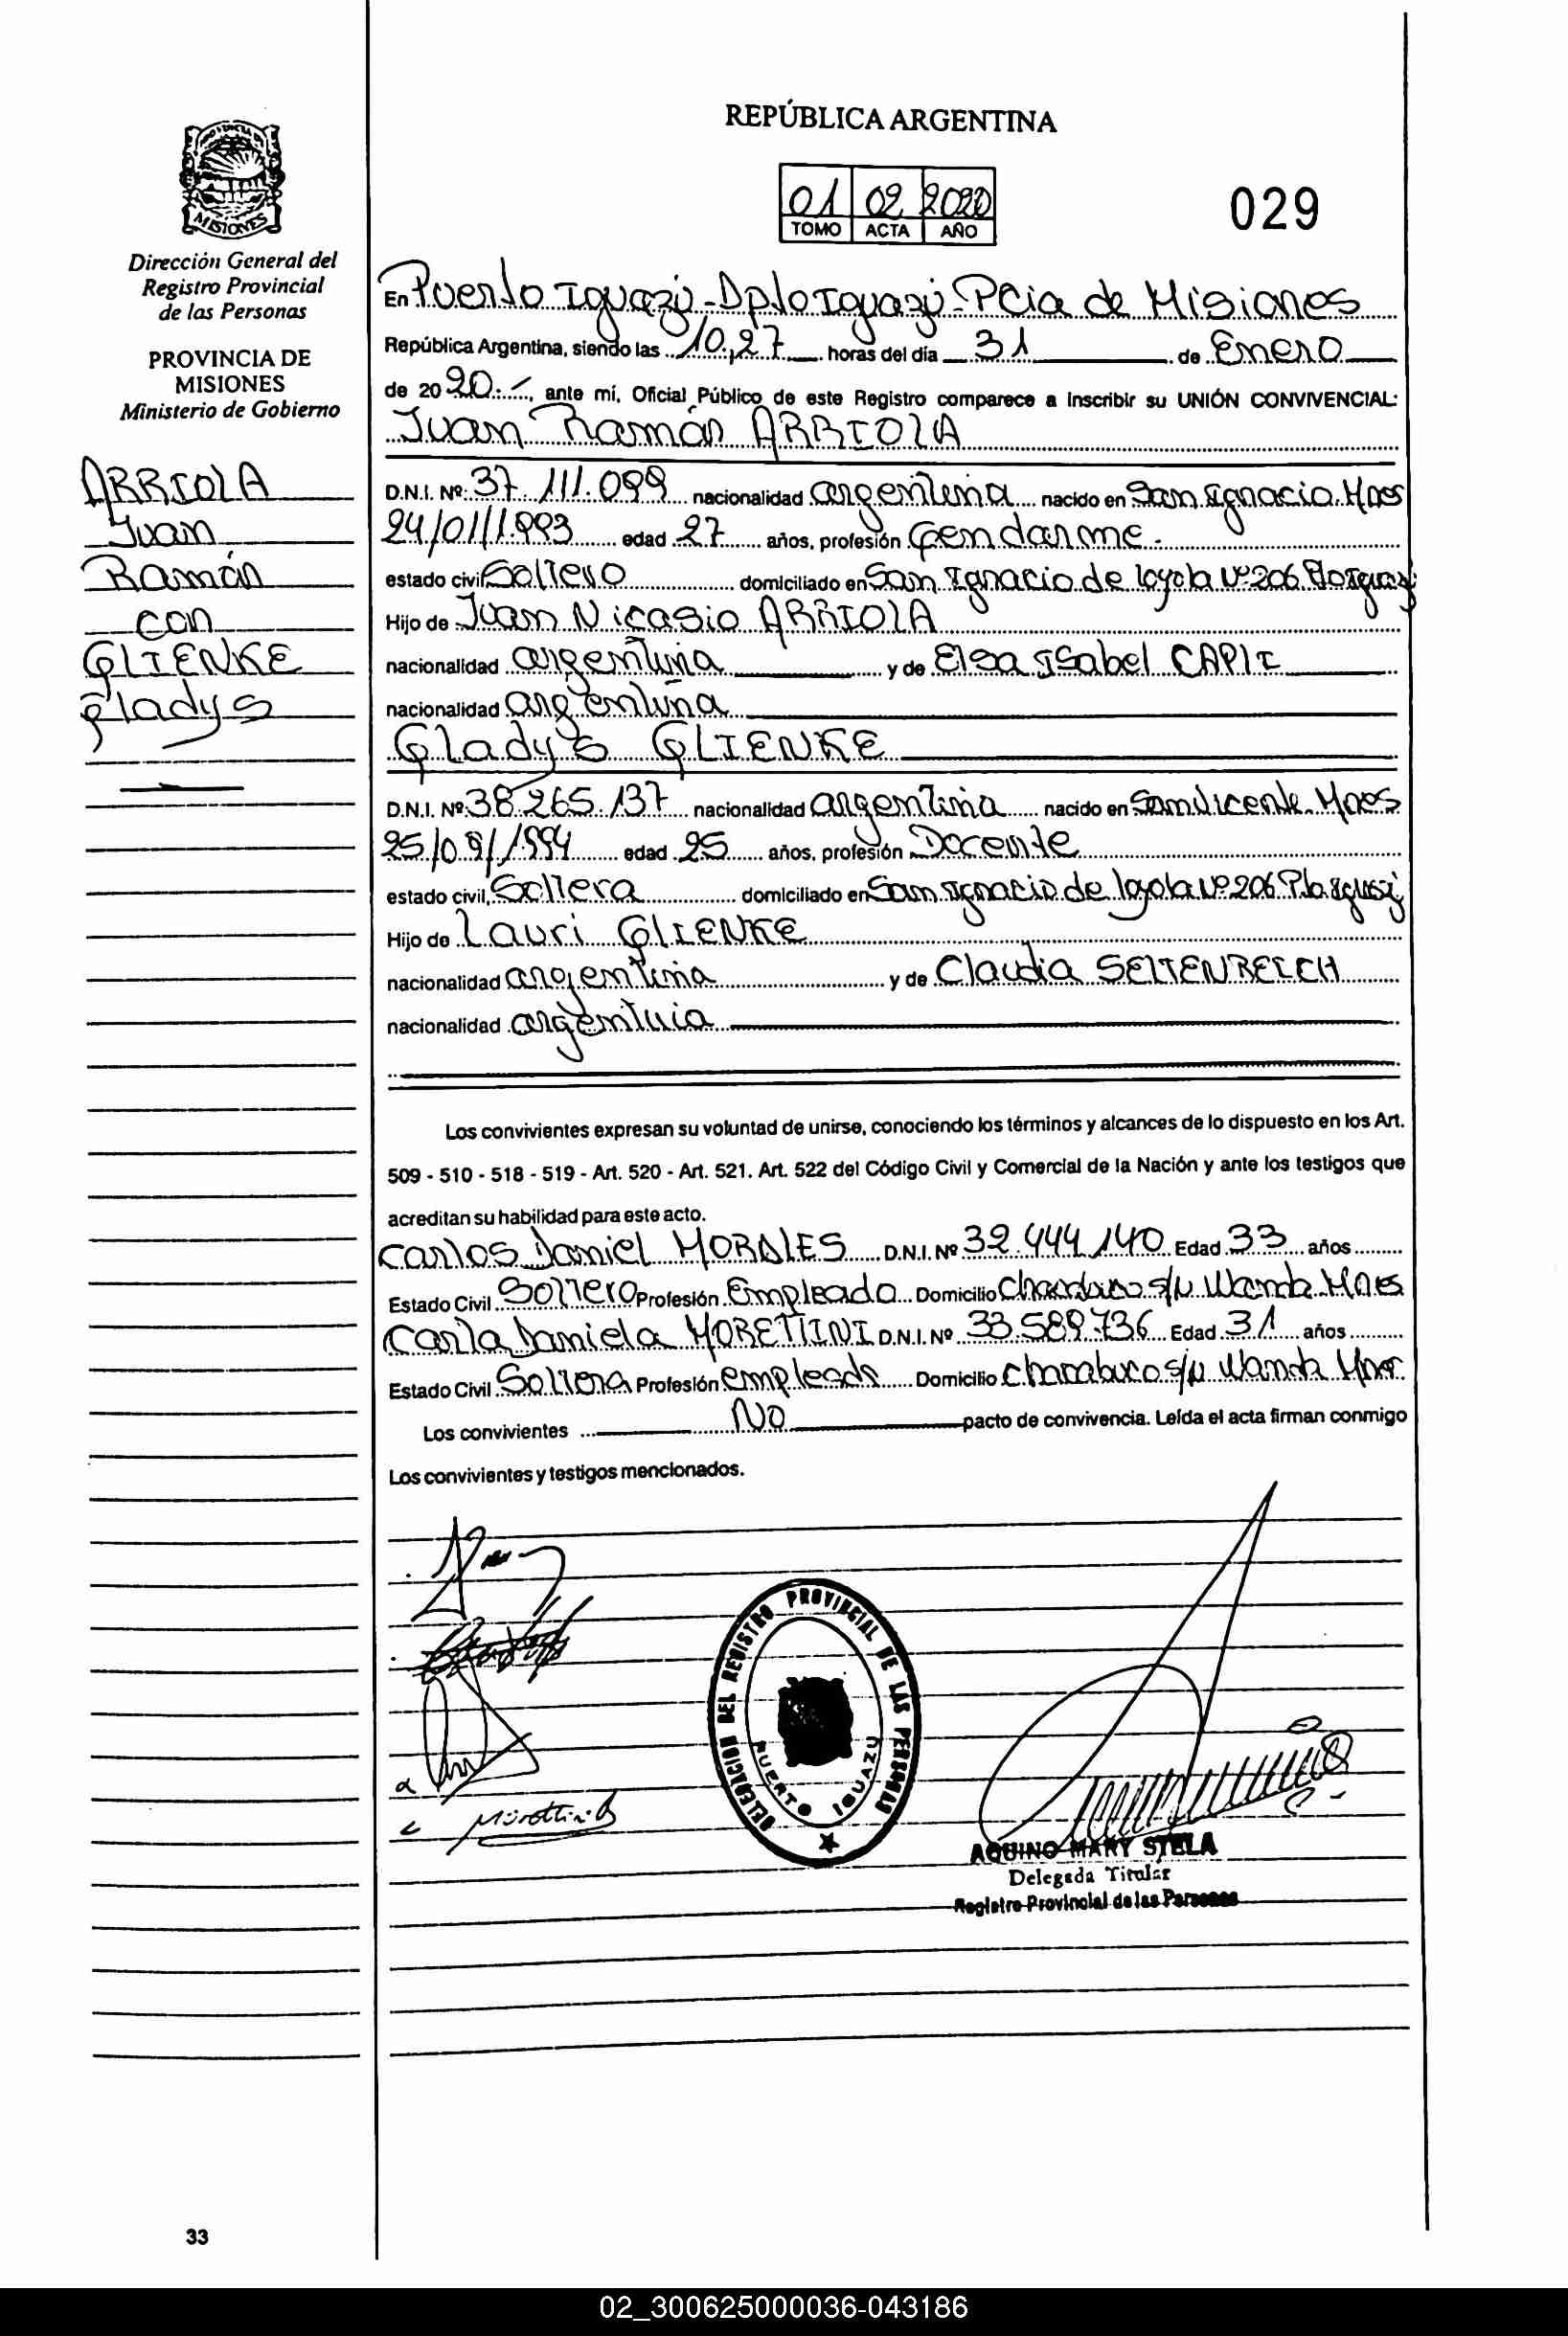 REPÚBLICA ARGENTINA
01 02 2020
TOMO ACTA AÑO
029
MISIONES
Dirección General del
Registro Provincial
de las Personas
PROVINCIA DE
MISIONES
Ministerio de Gobierno
ARRIOLA
Juan
Ramón
con
GLIENKE
Gladys
En Puerto Iguazú - Dpto Iguazú - Pcia de Misiones
República Argentina, siendo las 10,27 horas del día 31 de Enero
de 2020.-, ante mí, Oficial Público de este Registro comparece a inscribir su UNIÓN CONVIVENCIAL:
Juan Ramón ARRIOLA
D.N.I. Nº 37.111.099 nacionalidad argentina nacido en San Ignacio Mnes
24/01/1.993 edad 27 años, profesión Gendarme.
estado civil Soltero domiciliado en San Ignacio de loyola Nº 206 Pto Iguazú
Hijo de Juan Nicasio ARRIOLA
nacionalidad argentina y de Elsa Isabel CAPLI
nacionalidad argentina
Gladys GLIENKE
D.N.I. Nº 38.265.137 nacionalidad argentina nacido en San Vicente Mnes
25/09/1994 edad 25 años, profesión Docente
estado civil, Soltera domiciliado en San Ignacio de loyola Nº 206 Pto Iguazú
Hijo de Lauri GLIENKE
nacionalidad argentina y de Claudia SEITENREICH
nacionalidad argentina
Los convivientes expresan su voluntad de unirse, conociendo los términos y alcances de lo dispuesto en los Art.
509 - 510 - 518 - 519 - Art. 520 - Art. 521. Art. 522 del Código Civil y Comercial de la Nación y ante los testigos que
acreditan su habilidad para este acto.
Carlos Daniel MORALES D.N.I. Nº 32.444.140 Edad 33 años
Estado Civil Soltero Profesión Empleado Domicilio Chacabuco s/n Wanda Mnes
Carla Daniela MORETTINI D.N.I. Nº 33.589.736 Edad 31 años
Estado Civil Soltera Profesión empleada Domicilio Chacabuco s/n Wanda Mnes.
Los convivientes NO pacto de convivencia. Leída el acta firman conmigo
Los convivientes y testigos mencionados.
DELEGACION DEL REGISTRO PROVINCIAL DE LAS PERSONAS
PUERTO IGUAZU
Morettini
AQUINO MARY STELA
Delegada Titular
Registro Provincial de las Personas
33
02_300625000036-043186